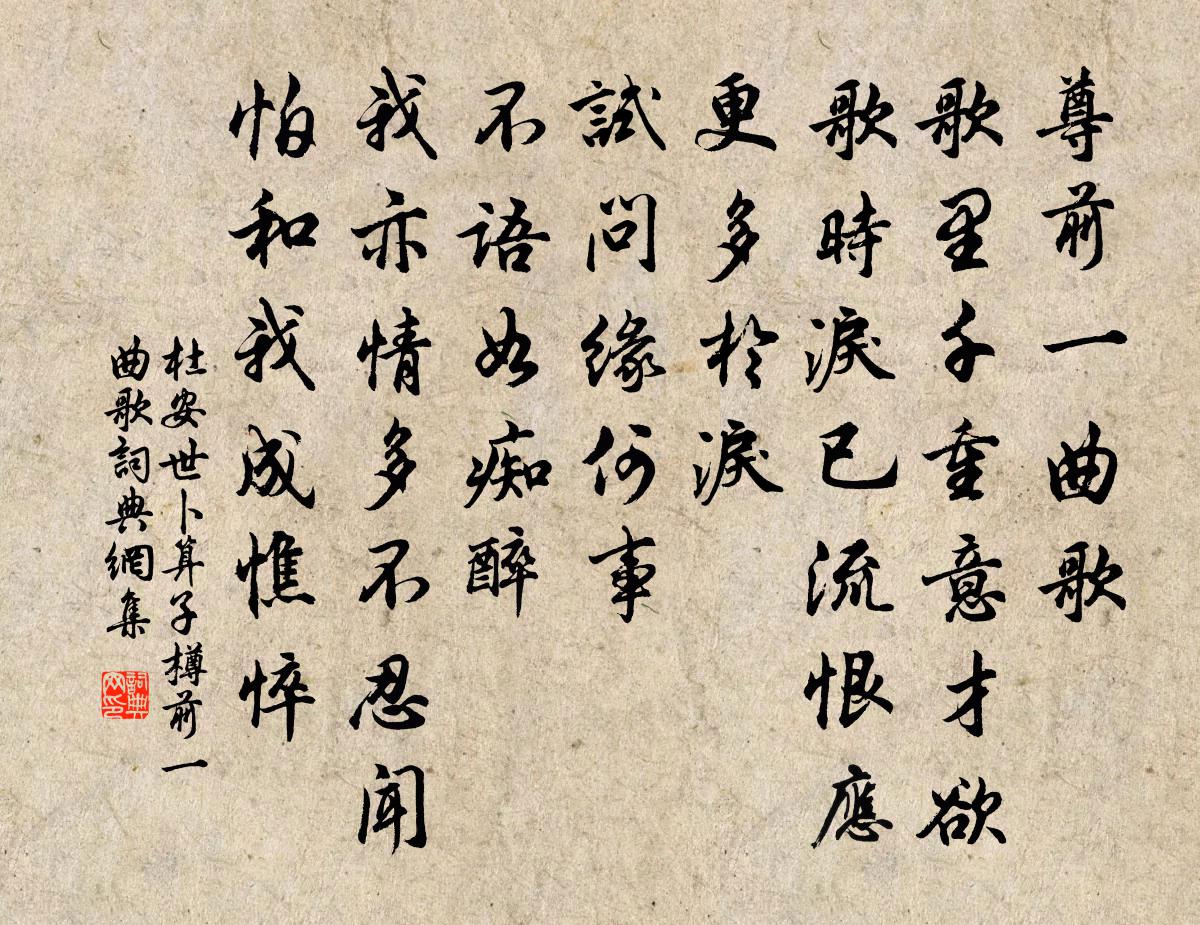 尊前一曲歌
歌里千重意才欲
歌時淚已流恨應
更多於淚
試問緣何事
不語如痴醉
我亦情多不忍聞
怕和我成憔悴
杜安世卜算子樽前一
曲歌詞典網集
詞典
网印